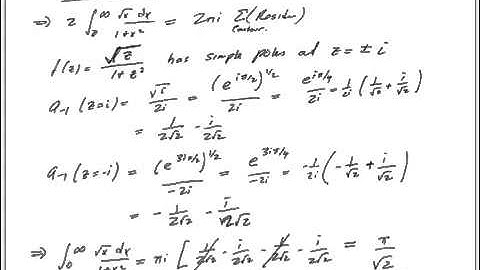 ⇒ 2 ∫₀^∞ √x dx / (1+x²) = 2πi Σ(Residues) Contour.
f(z) = √z / (1+z²) has simple poles at z = ± i
a₋₁(z=i) = √i / 2i = (e^{iπ/2})^{1/2} / 2i = e^{iπ/4} / 2i = 1/2i (1/√2 + i/√2)
= 1/2√2 - i/2√2
a₋₁(z=-i) = (e^{3iπ/2})^{1/2} / -2i = e^{3iπ/4} / -2i = -1/2i (-1/√2 + i/√2)
= - 1/2√2 - i/2√2
⇒ ∫₀^∞ √x dx / (1+x²) = πi [ 1/2√2 - i/2√2 - 1/2√2 - i/2√2 = π/√2